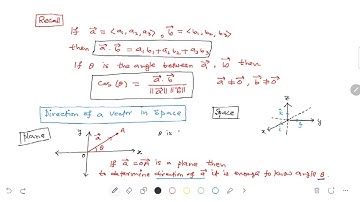 Recall
If a⃗ = <a₁, a₂, a₃>, b⃗ = <b₁, b₂, b₃>
then a⃗ · b⃗ = a₁b₁ + a₂b₂ + a₃b₃
If θ is the angle between a⃗, b⃗ then
Cos(θ) = a⃗ · b⃗ / ‖a⃗‖ ‖b⃗‖ a⃗ ≠ 0⃗, b⃗ ≠ 0⃗
Direction of a vector in Space
Plane
Space
y
A
a⃗
θ
O
x
θ is
z
y
x
If a⃗ = OA is a plane then
to determine direction of a⃗ it is enough to know angle θ.